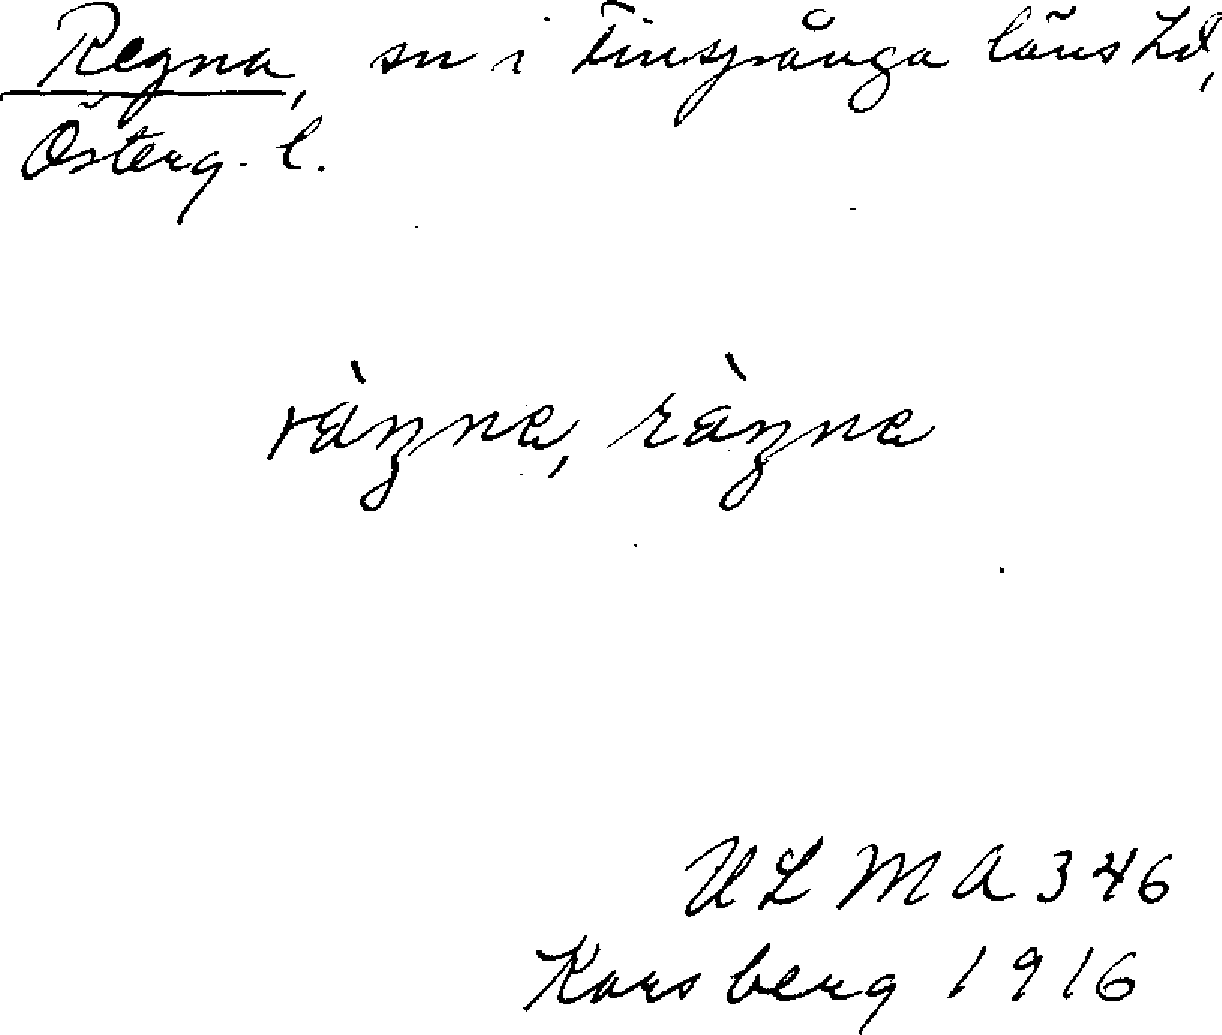 Regna, sn i Finspånga läns hd,
Österg. l.
ràŋna, ràŋna
ULMA 346
Karsberg 1916